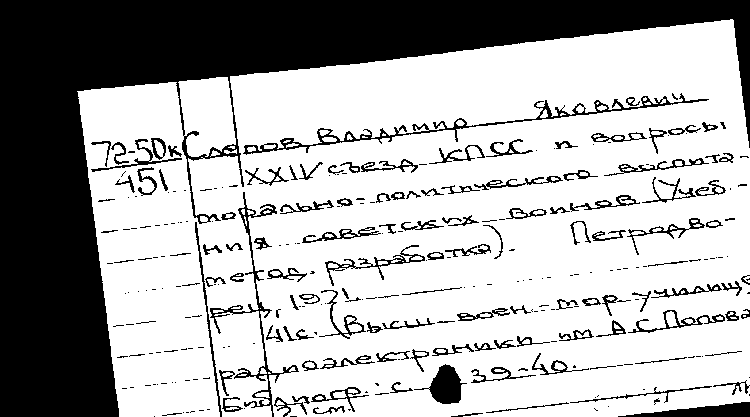 72-50к Слепов, Владимир Яковлевич
451 XXIV съезд КПСС и вопросы
морально-политического воспита-
ния советских воинов (Учеб.-
метод. разработка). Петродво-
рец, 1971.
41с. (Высш. воен.-мор. училище
радиоэлектроники им А.С. Попова
Библиогр: с. 39-40.
21 см.